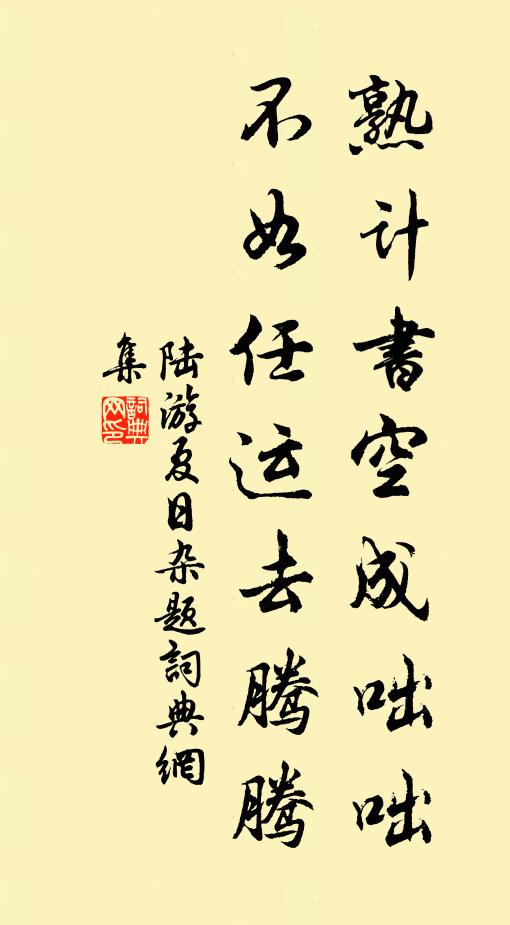 熟计書空成咄咄
不如任运去腾腾
陆游夏日杂题詞典網
集
詞典网印